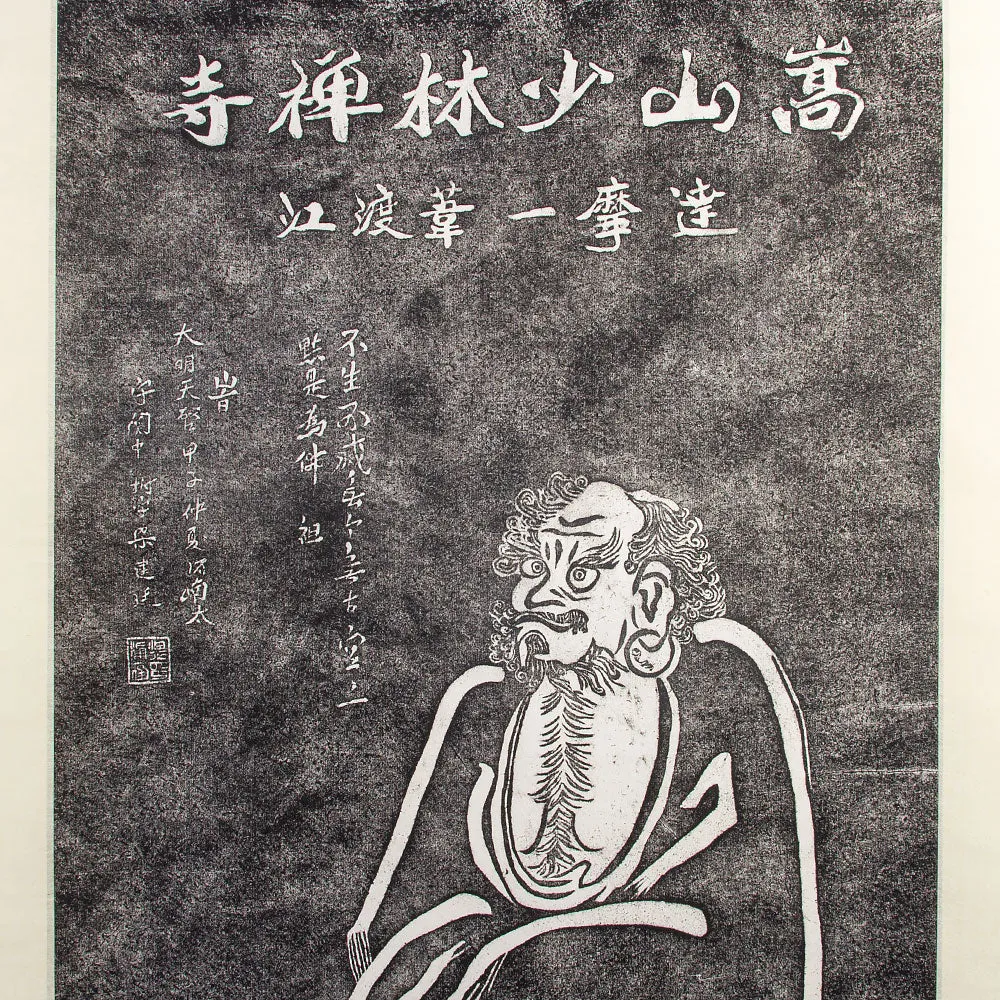 嵩山少林禅寺
達摩一葦渡江
不生不滅無今無古
點是為佛祖
旹
大明天啓甲子仲夏河南太
守閩中梁建廷